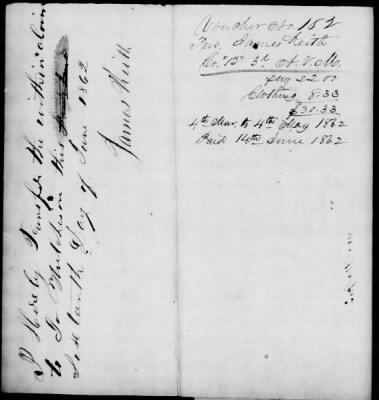 I Hereby Transfer the within claim
to Jn Hutcheson this
Day of June 1862
James Keith
Voucher No 152
Pvr. James Keith
Co. "B" 3d A.V.M.
pay 22.00
Clothing 8.33
$30.33
4th Mar. to 4th May 1862
Paid 14th June 1862